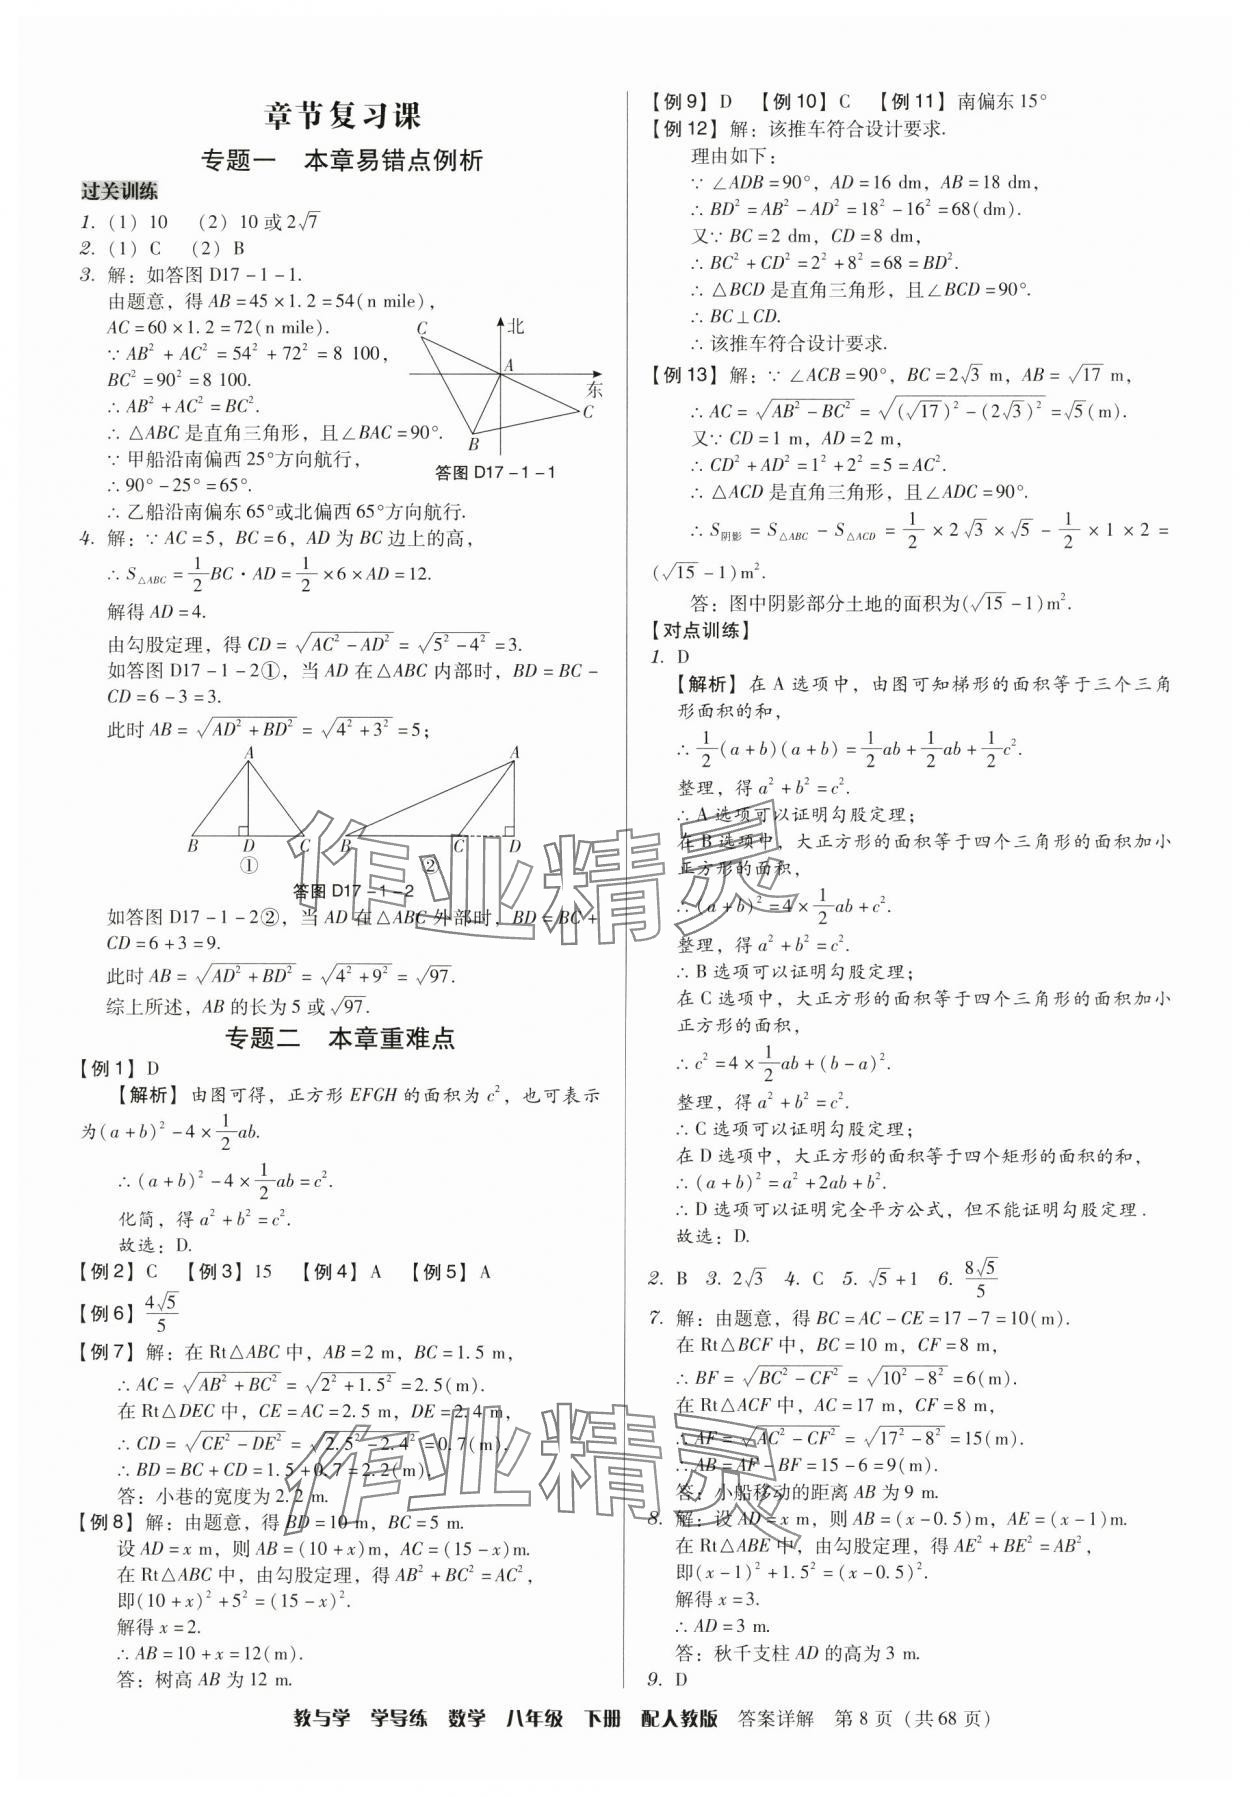 章节复习课
专题一　本章易错点例析
过关训练
1. (1) 10　(2) 10 或 2√7
2. (1) C　(2) B
3. 解：如答图 D17-1-1.
由题意，得 AB=45×1.2=54(n mile)，
AC=60×1.2=72(n mile).
∵ AB²+AC²=54²+72²=8 100，
BC²=90²=8 100.
∴ AB²+AC²=BC².
∴ △ABC 是直角三角形，且∠BAC=90°.
∵ 甲船沿南偏西 25°方向航行，
∴ 90°-25°=65°.
∴ 乙船沿南偏东 65°或北偏西 65°方向航行.
C 北 A 东 C B
答图 D17-1-1
4. 解：∵ AC=5，BC=6，AD 为 BC 边上的高，
∴ S△ABC=1/2 BC·AD=1/2×6×AD=12.
解得 AD=4.
由勾股定理，得 CD=√(AC²-AD²)=√(5²-4²)=3.
如答图 D17-1-2①，当 AD 在△ABC 内部时，BD=BC-
CD=6-3=3.
此时 AB=√(AD²+BD²)=√(4²+3²)=5；
A A
B D C B C D
① ②
答图 D17-1-2
如答图 D17-1-2②，当 AD 在△ABC 外部时，BD=BC+
CD=6+3=9.
此时 AB=√(AD²+BD²)=√(4²+9²)=√97.
综上所述，AB 的长为 5 或√97.
专题二　本章重难点
【例 1】D
【解析】由图可得，正方形 EFGH 的面积为 c²，也可表示
为(a+b)²-4×1/2 ab.
∴ (a+b)²-4×1/2 ab=c².
化简，得 a²+b²=c².
故选：D.
【例 2】C　【例 3】15　【例 4】A　【例 5】A
【例 6】4√5/5
【例 7】解：在 Rt△ABC 中，AB=2 m，BC=1.5 m，
∴ AC=√(AB²+BC²)=√(2²+1.5²)=2.5(m).
在 Rt△DEC 中，CE=AC=2.5 m，DE=2.4 m，
∴ CD=√(CE²-DE²)=√(2.5²-2.4²)=0.7(m).
∴ BD=BC+CD=1.5+0.7=2.2(m).
答：小巷的宽度为 2.2 m.
【例 8】解：由题意，得 BD=10 m，BC=5 m.
设 AD=x m，则 AB=(10+x)m，AC=(15-x)m.
在 Rt△ABC 中，由勾股定理，得 AB²+BC²=AC²，
即(10+x)²+5²=(15-x)².
解得 x=2.
∴ AB=10+x=12(m).
答：树高 AB 为 12 m.
【例 9】D　【例 10】C　【例 11】南偏东 15°
【例 12】解：该推车符合设计要求.
理由如下：
∵ ∠ADB=90°，AD=16 dm，AB=18 dm，
∴ BD²=AB²-AD²=18²-16²=68(dm).
又∵ BC=2 dm，CD=8 dm，
∴ BC²+CD²=2²+8²=68=BD².
∴ △BCD 是直角三角形，且∠BCD=90°.
∴ BC⊥CD.
∴ 该推车符合设计要求.
【例 13】解：∵ ∠ACB=90°，BC=2√3 m，AB=√17 m，
∴ AC=√(AB²-BC²)=√((√17)²-(2√3)²)=√5(m).
又∵ CD=1 m，AD=2 m，
∴ CD²+AD²=1²+2²=5=AC².
∴ △ACD 是直角三角形，且∠ADC=90°.
∴ S阴影=S△ABC-S△ACD=1/2×2√3×√5-1/2×1×2=
(√15-1)m².
答：图中阴影部分土地的面积为(√15-1)m².
【对点训练】
1. D
【解析】在 A 选项中，由图可知梯形的面积等于三个三角
形面积的和，
∴ 1/2(a+b)(a+b)=1/2 ab+1/2 ab+1/2 c².
整理，得 a²+b²=c².
∴ A 选项可以证明勾股定理；
在 B 选项中，大正方形的面积等于四个三角形的面积加小
正方形的面积，
∴ (a+b)²=4×1/2 ab+c².
整理，得 a²+b²=c².
∴ B 选项可以证明勾股定理；
在 C 选项中，大正方形的面积等于四个三角形的面积加小
正方形的面积，
∴ c²=4×1/2 ab+(b-a)².
整理，得 a²+b²=c².
∴ C 选项可以证明勾股定理；
在 D 选项中，大正方形的面积等于四个矩形的面积的和，
∴ (a+b)²=a²+2ab+b².
∴ D 选项可以证明完全平方公式，但不能证明勾股定理.
故选：D.
2. B　3. 2√3　4. C　5. √5+1　6. 8√5/5
7. 解：由题意，得 BC=AC-CE=17-7=10(m).
在 Rt△BCF 中，BC=10 m，CF=8 m，
∴ BF=√(BC²-CF²)=√(10²-8²)=6(m).
在 Rt△ACF 中，AC=17 m，CF=8 m，
∴ AF=√(AC²-CF²)=√(17²-8²)=15(m).
∴ AB=AF-BF=15-6=9(m).
答：小船移动的距离 AB 为 9 m.
8. 解：设 AD=x m，则 AB=(x-0.5)m，AE=(x-1)m.
在 Rt△ABE 中，由勾股定理，得 AE²+BE²=AB²，
即(x-1)²+1.5²=(x-0.5)².
解得 x=3.
∴ AD=3 m.
答：秋千支柱 AD 的高为 3 m.
9. D
作业精灵
作业精灵
教与学　学导练　数学　八年级　下册　配人教版　答案详解　第 8 页（共 68 页）